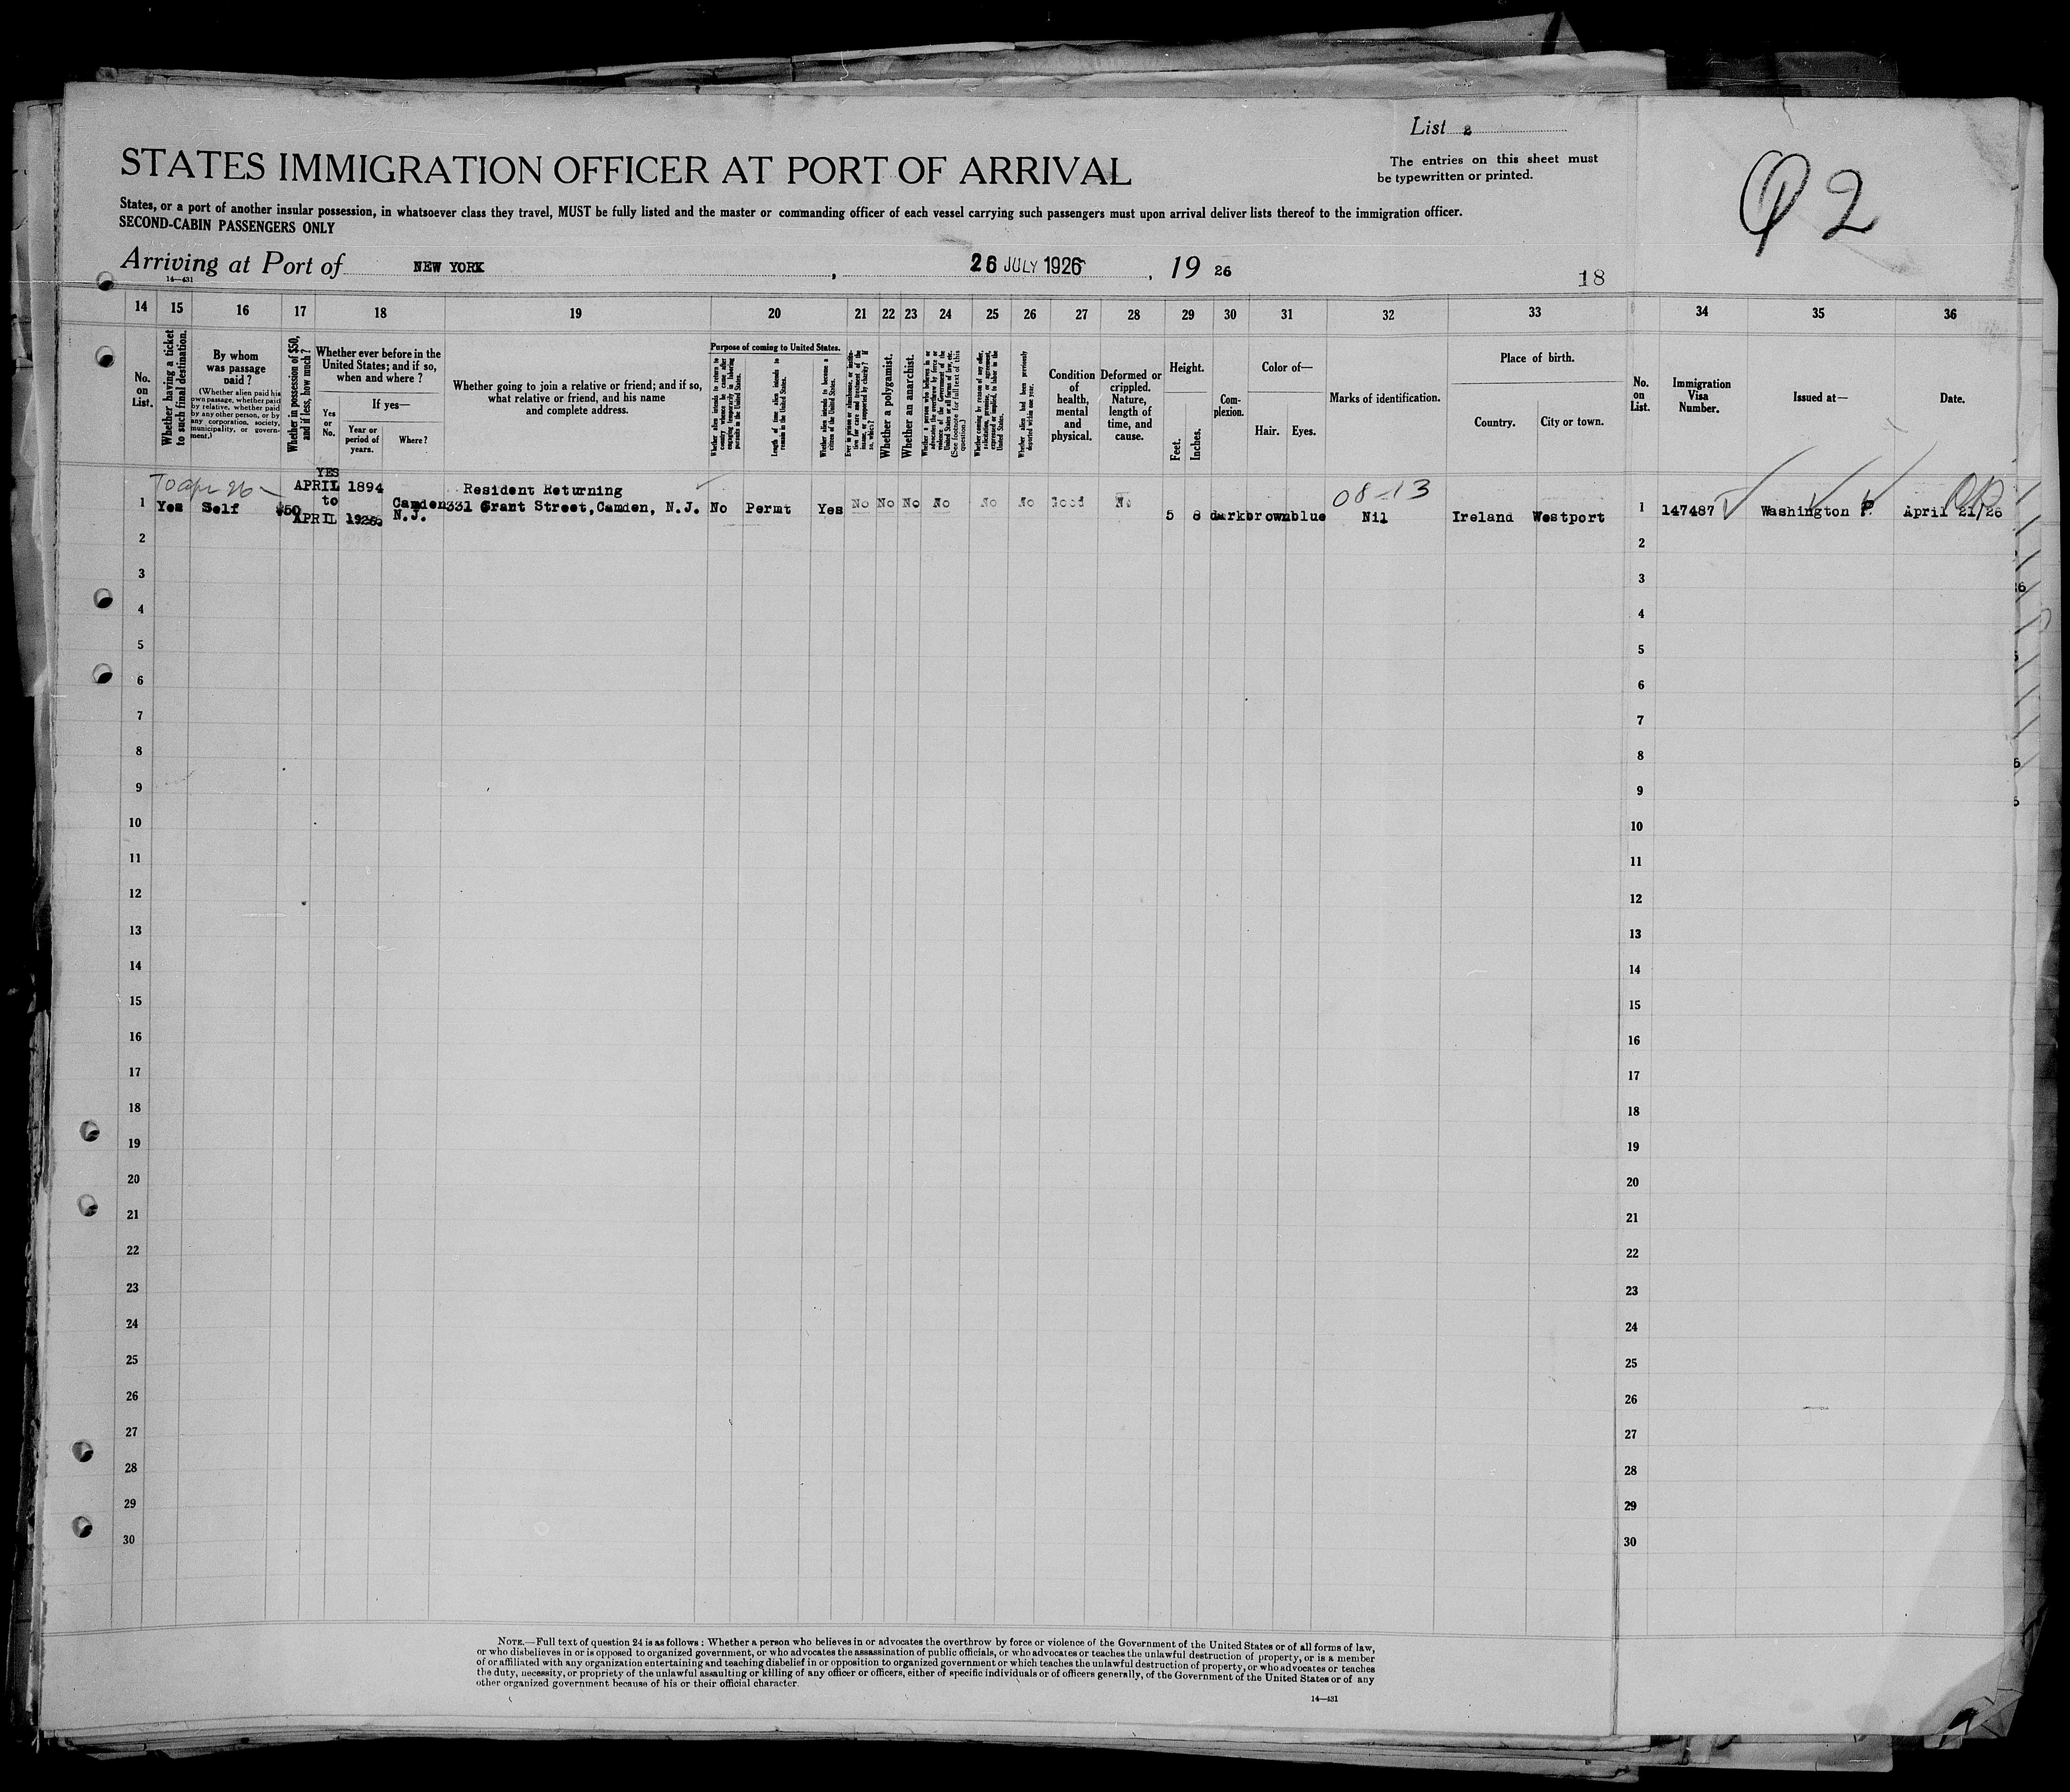 List 2
STATES IMMIGRATION OFFICER AT PORT OF ARRIVAL
The entries on this sheet must
be typewritten or printed.
Q 2
States, or a port of another insular possession, in whatsoever class they travel, MUST be fully listed and the master or commanding officer of each vessel carrying such passengers must upon arrival deliver lists thereof to the immigration officer.
SECOND-CABIN PASSENGERS ONLY
Arriving at Port of NEW YORK, 26 JULY 1926, 19 26
14—431
18
14 15 16 17 18 19 20 21 22 23 24 25 26 27 28 29 30 31 32 33 34 35 36
No. on List.
Whether having a ticket to such final destination.
By whom was passage paid?
(Whether alien paid his own passage, whether paid by relative, whether paid by any other person, or by any corporation, society, municipality, or government.)
Whether in possession of $50, and if less, how much?
Whether ever before in the United States; and if so, when and where?
Yes or No.
If yes—
Year or period of years.
Where?
Whether going to join a relative or friend; and if so, what relative or friend, and his name and complete address.
Purpose of coming to United States.
Whether alien intends to return to country whence he came after engaging temporarily in laboring pursuits in the United States.
Length of time alien intends to remain in the United States.
Whether alien intends to become a citizen of the United States.
Ever in prison or almshouse, or institution for care and treatment of the insane, or supported by charity? If so, which?
Whether a polygamist.
Whether an anarchist.
Whether a person who believes in or advocates the overthrow by force or violence of the Government of the United States or all forms of law, etc. (See footnote for full text of this question.)
Whether coming by reason of any offer, solicitation, promise, or agreement, expressed or implied, to labor in the United States.
Whether alien had been previously deported within one year.
Condition of health, mental and physical.
Deformed or crippled. Nature, length of time, and cause.
Height.
Feet.
Inches.
Complexion.
Color of—
Hair.
Eyes.
Marks of identification.
Place of birth.
Country.
City or town.
No. on List.
Immigration Visa Number.
Issued at—
Date.
YES
APRIL 1894
Resident Returning
08-13
to
1 Yes Self $50 Camden 331 Grant Street, Camden, N.J. No Permt Yes No No No No No No Good No 5 8 dark brown blue Nil Ireland Westport 1 147487 Washington April 21/26
APRIL
N.J.
2 2
3 3
4 4
5 5
6 6
7 7
8 8
9 9
10 10
11 11
12 12
13 13
14 14
15 15
16 16
17 17
18 18
19 19
20 20
21 21
22 22
23 23
24 24
25 25
26 26
27 27
28 28
29 29
30 30
NOTE.—Full text of question 24 is as follows: Whether a person who believes in or advocates the overthrow by force or violence of the Government of the United States or of all forms of law,
or who disbelieves in or is opposed to organized government, or who advocates the assassination of public officials, or who advocates or teaches the unlawful destruction of property, or is a member
of or affiliated with any organization entertaining and teaching disbelief in or opposition to organized government or which teaches the unlawful destruction of property, or who advocates or teaches
the duty, necessity, or propriety of the unlawful assaulting or killing of any officer or officers, either of specific individuals or of officers generally, of the Government of the United States or of any
other organized government because of his or their official character.
14—431